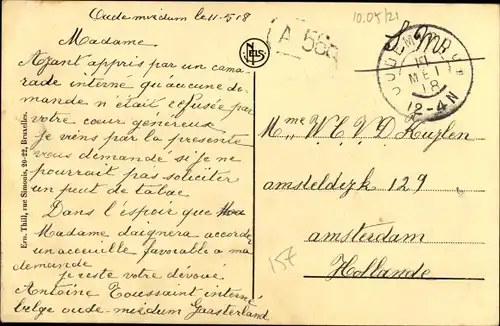 Oude mirdum le 11-5 18
Madame
Ayant appris par un cama-
rade interné qu'aucune de-
mande n'était refusée par
votre cœur généreux
Je viens par la présente
vous demande si je ne
pourrait pas soliciter
un peut de tabac
Dans l'éspoir que
Madame daignera accorde
un accuille favorable a ma
demande
je reste votre dévoué
Antoine Toussaint interné
belge oude-mirdum Gaasterland
Ern. Thill, rue Simonis, 20-22, Bruxelles.
NELS
A 56
10.05/21
OUDEMIRDUM
11 MEI 18
12-4 N
Mme W. E. V. D Kuylen
amsteldijk 129
amsterdam
Hollande
15F